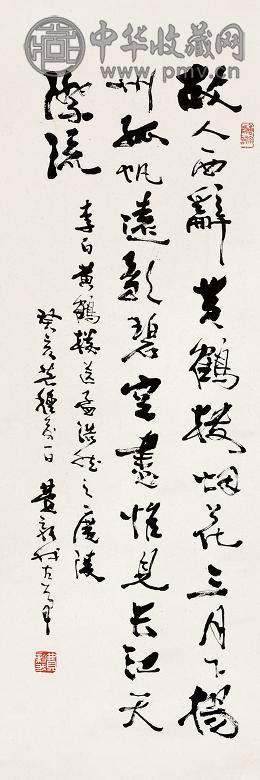 中华收藏网
www.pmv.cn
故人西辭黄鶴樓烟花三月下揚
州孤帆遠影碧空盡惟見長江天
際流
李白黄鶴樓送孟浩然之廣陵
癸亥芒種前一日費新我左筆